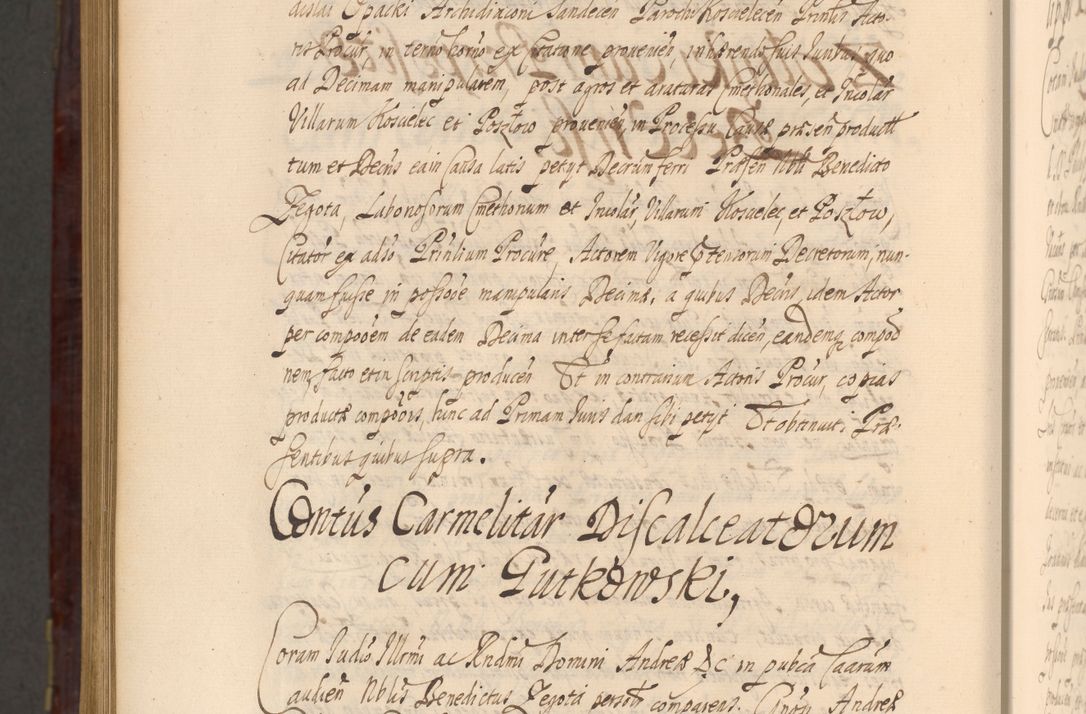 dislai Opacki Archidiaconi Sandecen Parochi Koscielecen Prinlis Acto-
ris Procur, in terno horno ex Citatione provenien, inhærendo suis Iuribus, quo
ad Decimam manipularem, post agros et araturas Cmethonales, et Incolar
Villarum Koscielec et Poszłow provenien, in Processu Causæ præsen product
tum et Decis eain Causa latis petyt Decrum ferri Præsen Nbli Benedicto
Zegota, Laboriosorum Cmethonum et Incolar, Villarum Koscielec, et Poszłow,
Citator ex adso Prinlium Procure, Actorem Vigore 3 tenorum Decretorum, nun-
quam fuisse in possoe manipularis Decimæ, a quibus Decis, idem Actor
per compoem de eadem Decima inter se factam recessit dicen, eandemq compo
nem, facto et in scriptis producen Et in contrarium Actoris Procur, copias
productæ compois, hunc ad Primam Iuris dan sibi petyt Et obtinuit; Præ-
sentibus quibus supra.
Contus Carmelitar Discalceatorum
cum Gutkowski,
Coram Iudio Illrmi ac Rndmi Domini Andreæ &c in pubca Caarum
audien Nblis Benedictus Zegota personr comparens Gnosi Andreæ